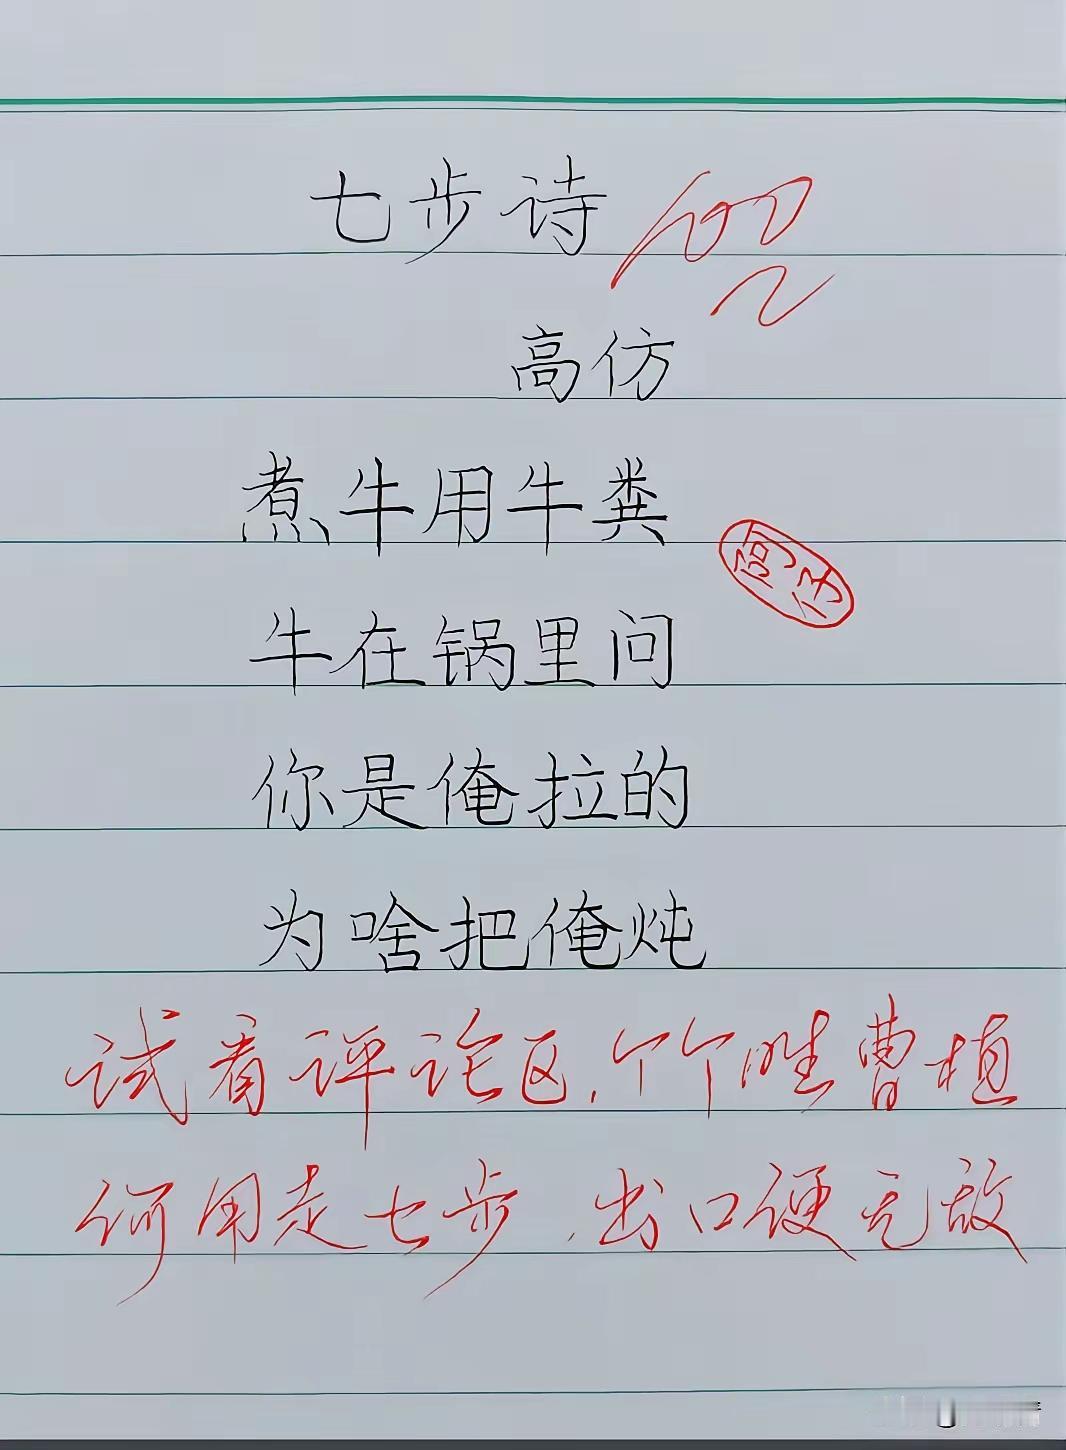 七步诗 100
高仿
煮牛用牛粪
阿仔
牛在锅里问
你是俺拉的
为啥把俺炖
试看评论区,个个胜曹植
何用走七步,出口便无敌